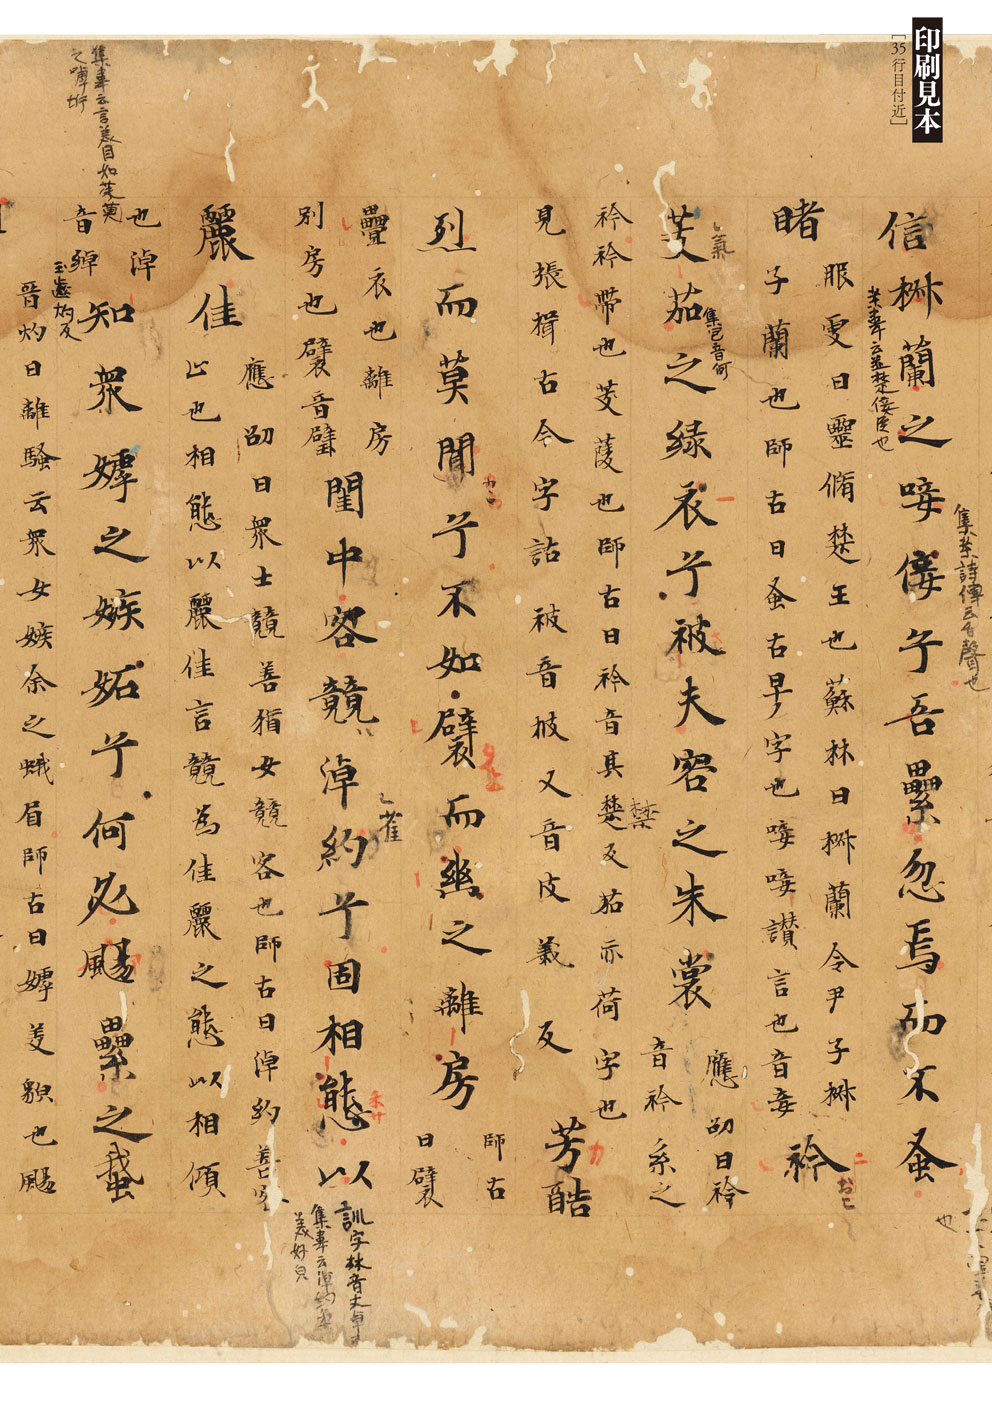 印刷見本
[35行目付近]
信椒蘭之唼佞兮吾纍忽焉而不蚤
睹
服虔曰靈脩楚王也蘇林曰椒蘭令尹子椒
子蘭也師古曰蚤古早字也唼唼譖言也音妾
衿
芰茄之緑衣兮被夫容之朱裳
應劭曰衿
音衿系之
衿衿帶也芰蔆也師古曰衿音其楚反茄亦荷字也
見張揖古今字詁被音披又音皮義反
芳酷
烈而莫聞兮不如襞而幽之離房
師古
曰襞
疊衣也離房
別房也襞音璧
閨中容競淖約兮固相態以
麗佳
應劭曰衆士競善猶女競容也師古曰淖約善容
止也相態以麗佳言競為佳麗之態以相傾
也淖
音綽
知衆嫭之嫉妬兮何必颺纍之蛾
晉灼曰離騷云衆女嫉余之蛾眉師古曰嫭美貌也颺
集音何
禁
訓字林音丈卓
集韋云淖約柔
美好皃
集韋云言美目如
之嫭